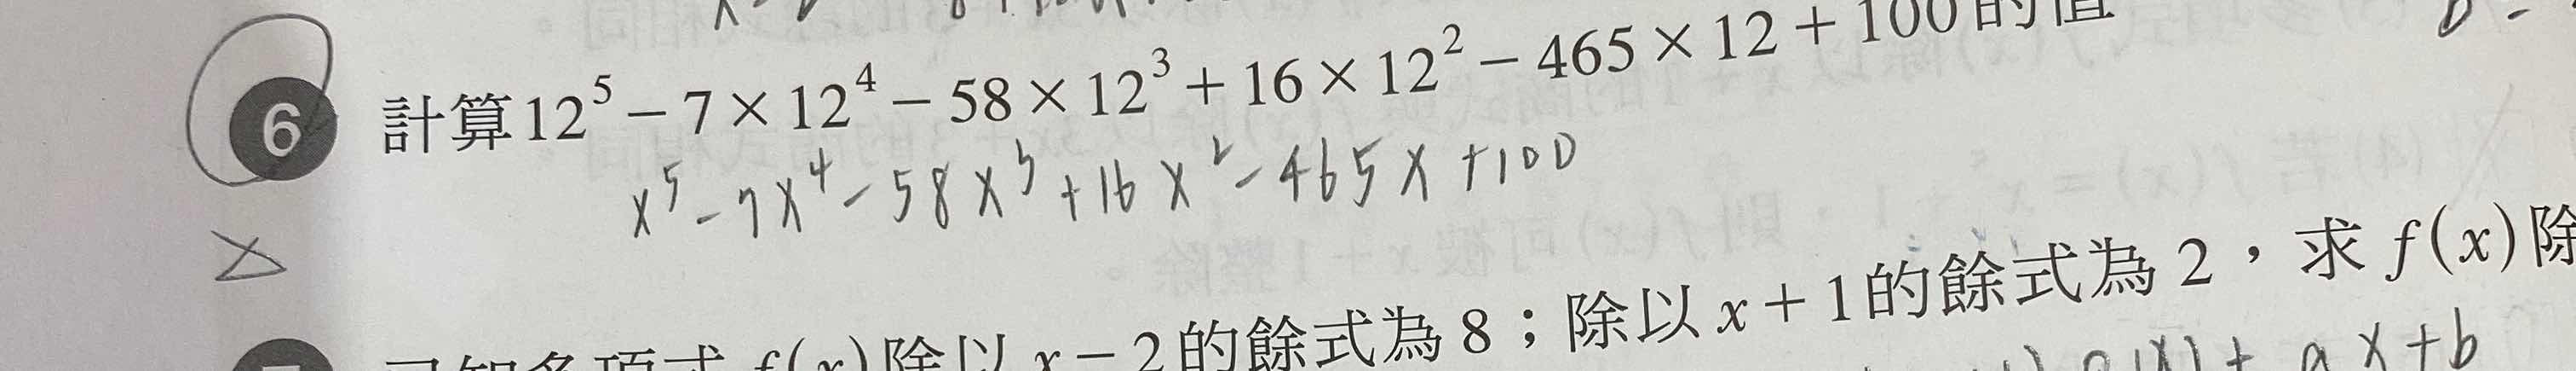 6 計算 12⁵ − 7 × 12⁴ − 58 × 12³ + 16 × 12² − 465 × 12 + 100 的值
x⁵ - 7x⁴ - 58x³ + 16x² - 465x + 100
已知多項式 f(x) 除以 x − 2 的餘式為 8；除以 x + 1 的餘式為 2，求 f(x) 除
ax+b